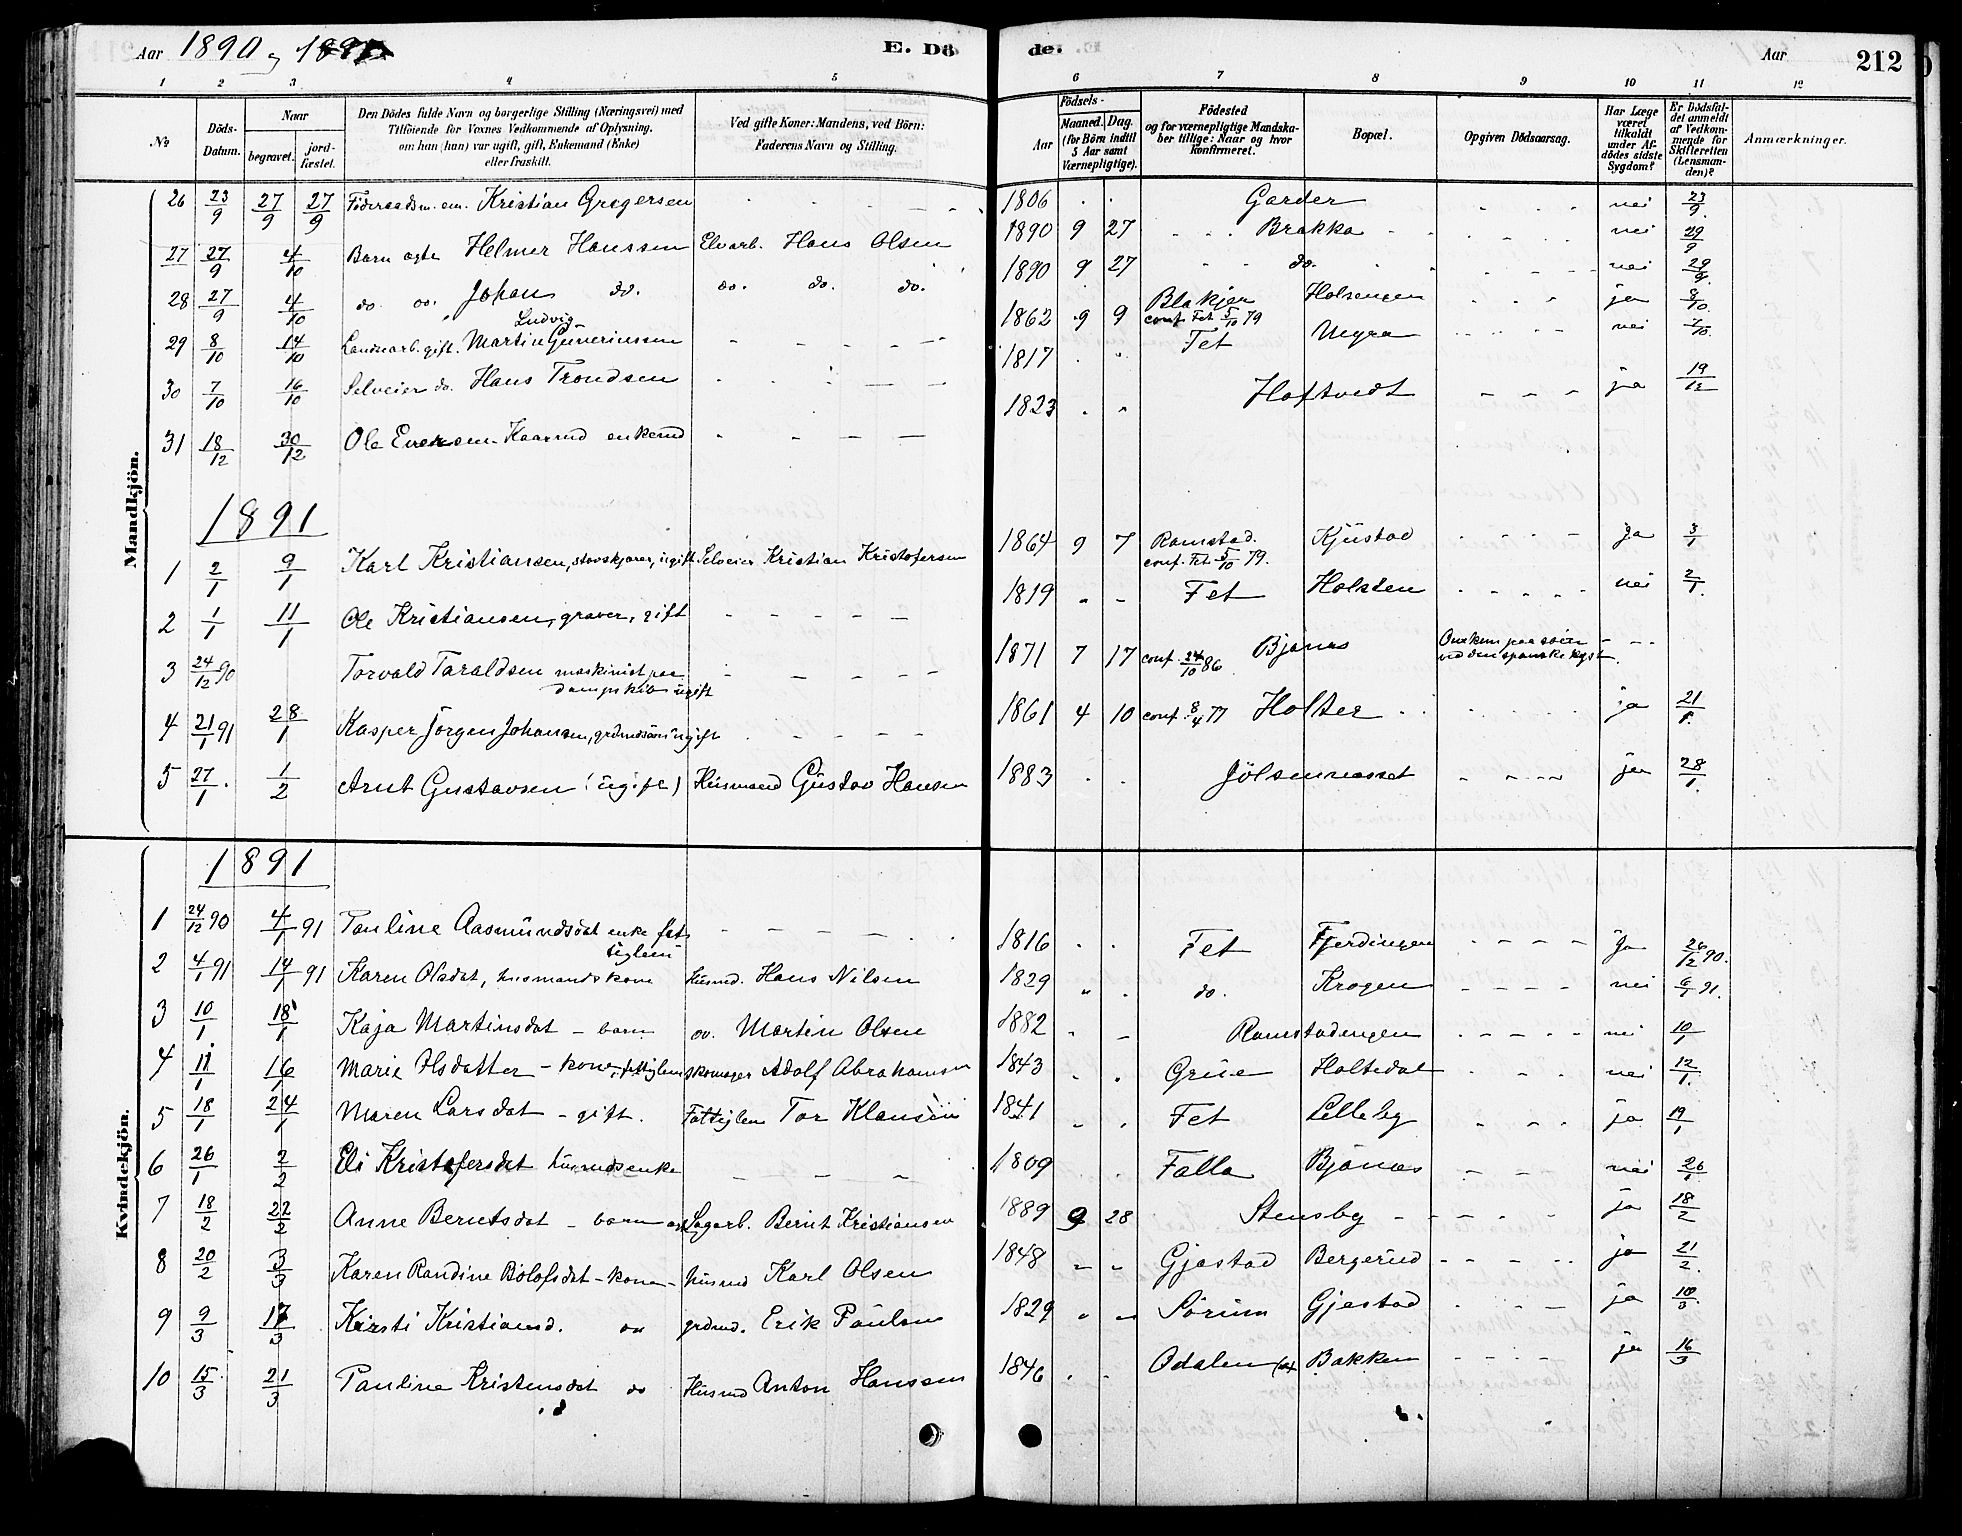 Aar 1890 og 1891
E. Dö
de.
Aar
212
1 2 3 4 5
6 7 8 9 10 11 12
No
Döds-Datum.
Naar
begravet.
jordfæstet.
Den Dödes fulde Navn og borgerlige Stilling (Næringsvei) med
Tilföiende for Voxnes Vedkommende af Oplysning,
om han (hun) var ugift, gift, Enkemand (Enke)
eller fraskilt.
Ved gifte Koner: Mandens, ved Börn:
Faderens Navn og Stilling.
Födsels-
Aar
Maaned. Dag.
(for Börn indtil
5 Aar samt
Værnepligtige).
Födested
og for værnepligtige Mandskaber
tillige: Naar og hvor
Konfirmeret.
Bopæl.
Opgiven Dödsaarsag.
Har Læge
været
tilkaldt
under Afdödes
sidste
Sygdom?
Er Dödsfaldet
anmeldt
af Vedkommende
for
Skifteretten
(Lensmanden)?
Anmærkninger.
Mandkjön.
26 23/9 27/9 27/9 Föderaadsm. em. Kristian Gregersen 1806 Garder nei 23/9
27 27/9 4/10 Barn ægte Helmer Hanssen Elvarb. Hans Olsen 1890 9 27 Brakka nei 29/9
28 27/9 4/10 do do. Johan do. do. do. do. 1890 9 27 do. nei 29/9
Ludvig
29 8/10 14/10 Landarb. gift. Martin Gunerinssen 1862 9 9 Blakjer Holsengen ja 8/10
conf. Fet 5/10 79
30 7/10 16/10 Selveier do. Hans Trondsen 1817 Fet Megra nei 7/10
31 18/12 30/12 Ole Evensen Kaarud enkemd 1823 Hoftvedt ja 19/12
1891
1 2/1 9/1 Karl Kristiansen, stavskjærer, ugift Selveier Kristian Kristofersen 1864 9 7 Ramstad. Kjustad ja 3/1
conf. Fet 5/10 79.
2 1/1 11/1 Ole Kristiansen, graver, gift 1819 Fet Holsten nei 2/1
3 24/12 90 Torvald Taraldsen maskinist paa 1871 7 17 conf. 24/10 86 Bjönes Omkom paa søen
dampskib ugift ved den spanske kyst.
4 21/1 91 28/1 Kasper Jörgen Johansen, grdmdssön ugift 1861 4 10 conf. 8/4 77 Holter ja 21/1
5 27/1 1/2 Arnt Gustavsen (ugift) Husmand Gustav Hansen 1883 Jölsenneset ja 28/1
Kvindekjön.
1891
1 24/12 90 4/1 91 Pauline Aasmundsdat enke fat- 1816 Fet Fjerdingen Ja 26/12 90.
tiglem
2 4/1 91 14/1 91 Karen Olsdat, husmandskone Husmd. Hans Nilsen 1829 do. Krogen nei 6/1 91.
3 10/1 18/1 Kaja Martinsdat - barn do. Martin Olsen 1882 Ramstadengen nei 10/1
4 11/1 16/1 Marie Olsdatter - kone, fattiglem skomager Adolf Abrahamsen 1843 Grue Holtedal nei 12/1
5 18/1 24/1 Maren Larsdat - gift. Fattiglem Tor Klausen 1841 Fet Lilleby ja 19/1
6 26/1 2/2 Eli Kristofersdat husmdsenke 1809 Falla Bjönes nei 26/1
7 18/2 22/2 Anne Berntsdat - barn Sagarb. Bernt Kristiansen 1889 9 28 Stensby ja 18/2
8 20/2 3/3 Karen Randine Bolofsdat - kone - husmd Karl Olsen 1848 Gjestad Bergerud ja 21/2
9 9/3 17/3 Kirsti Kristiansd. do grdmd. Erik Paulsen 1829 Sörum Gjestad ja 10/3
10 15/3 21/3 Pauline Kristensdat do Husmd Anton Hansen 1846 Odalen Bakken ja 16/3